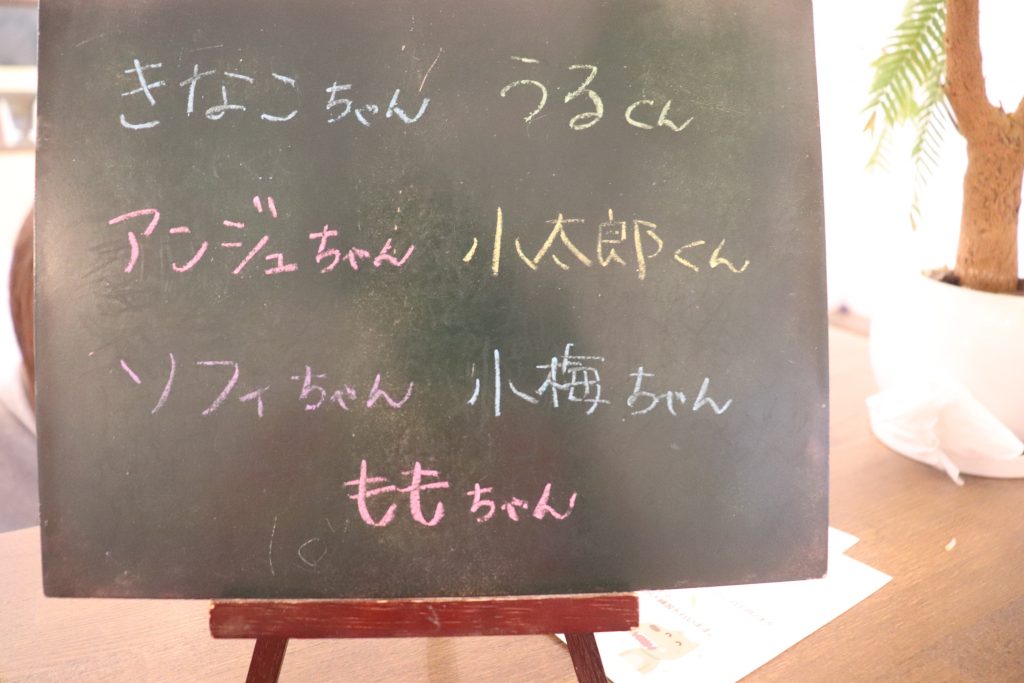 きなこちゃん うるくん
アンジュちゃん 小太郎くん
ソフィちゃん 小梅ちゃん
ももちゃん